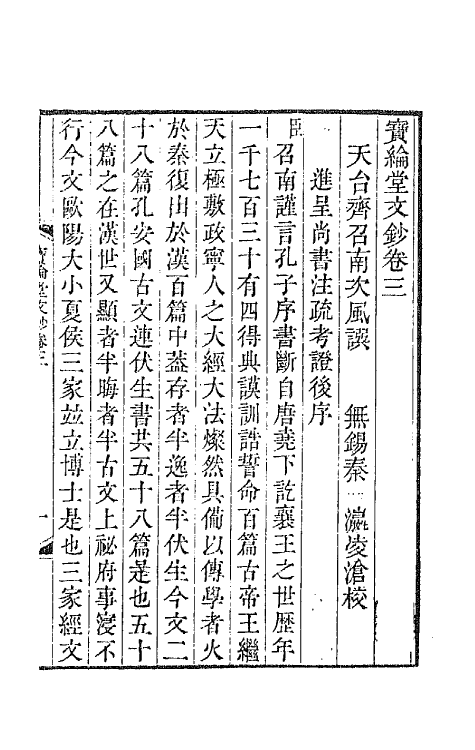 寶綸堂文鈔卷三
天台齊召南次風譔 無錫秦瀛淩滄校
進呈尚書注疏考證後序
臣召南謹言孔子序書斷自唐堯下訖襄王之世歷年
一千七百三十有四得典謨訓誥誓命百篇古帝王繼
天立極敷政寧人之大經大法燦然具備以傳學者火
於秦復出於漢百篇中蓋存者半逸者半伏生今文二
十八篇孔安國古文連伏生書共五十八篇是也五十
八篇之在漢世又顯者半晦者半古文上祕府事寖不
行今文歐陽大小夏侯三家竝立博士是也三家經文
寶綸堂文鈔卷三
一